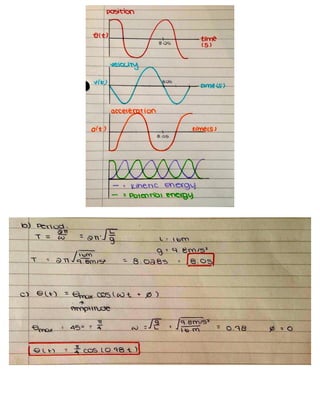 position
θ(t)
8.0s
time
(s)
velocity
v(t)
8.0s
time(s)
acceleration
a(t)
8.0s
time(s)
— = Kinetic Energy
— = Potential Energy
b) Period
T = 2π/ω = 2π·√(L/g)
L = 16m
g = 9.8m/s²
T = 2π √(16m/9.8m/s²) = 8.028s = 8.0s
c) θ(t) = θmax cos(ωt + ø)
Amplitude
θmax = 45° = π/4 ω = √(g/L) = √(9.8m/s²/16m) = 0.78 ø = 0
θ(t) = π/4 cos(0.78t)